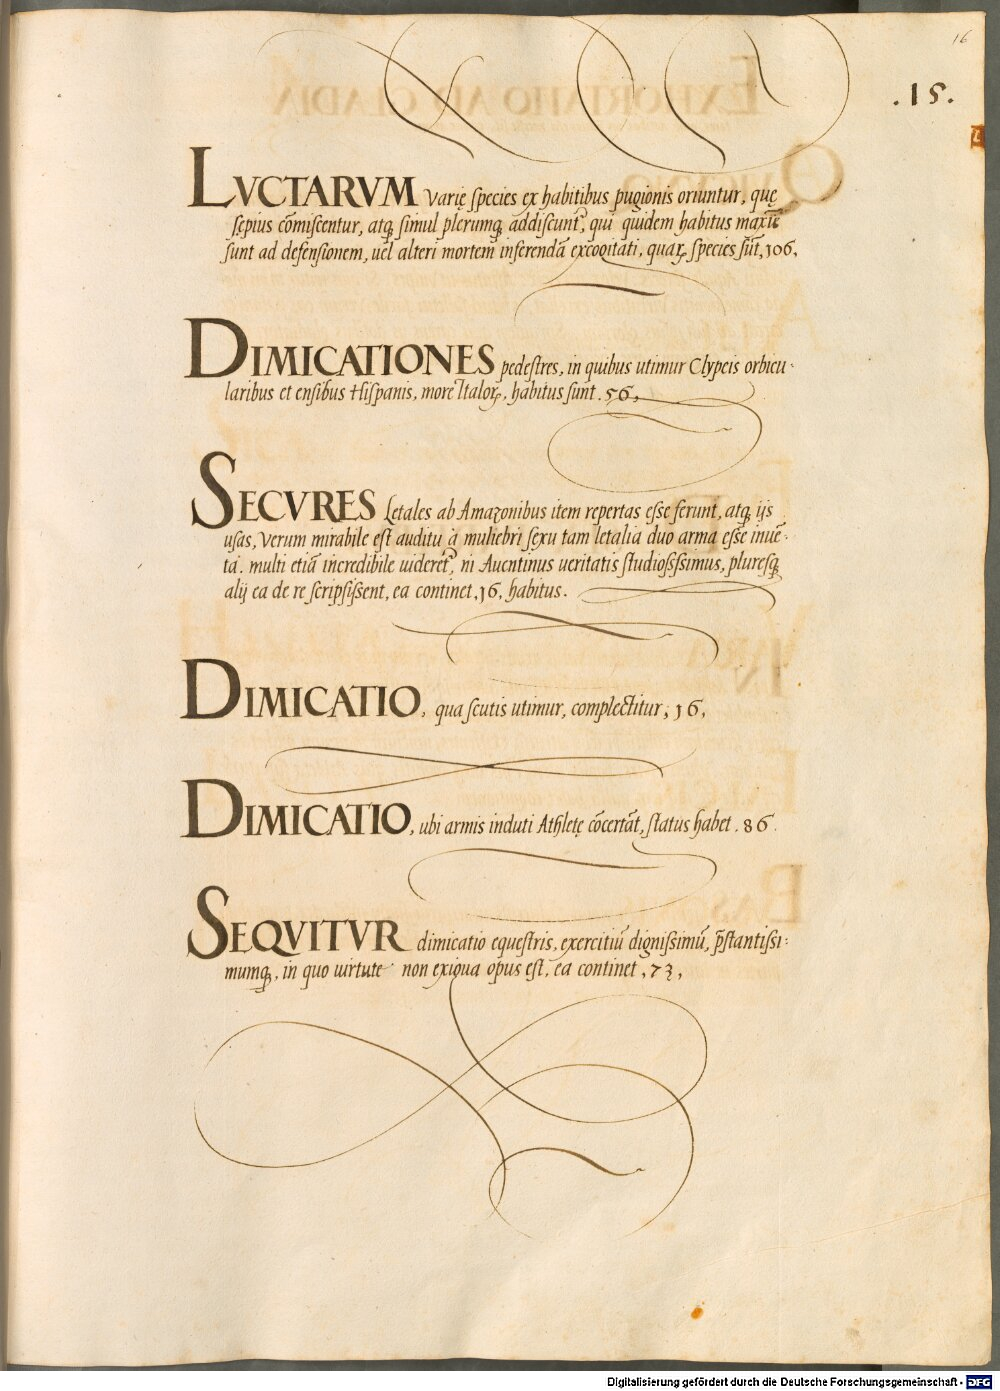 16
.15.
LVCTARVM varię species ex habitibus pugionis oriuntur, quę
sępius cōmiscentur, atq; simul plerumq; addiscunt᷑, qui quidem habitus maxīe
sunt ad defensionem, uel alteri mortem inferendā excogitati, quaꝝ species sūt, 106,
DIMICATIONES pedestres, in quibus utimur Clypeis orbicu-
laribus et ensibus Hispanis, more Italoꝝ, habitus sunt. 56,
SECVRES Letales ab Amazonibus item repertas esse ferunt, atq; ijs
usas, verum mirabile est auditu à muliebri sexu tam letalia duo arma esse inuē-
ta. multi etiā incredibile uideret᷑, ni Auentinus ueritatis studiosissimus, pluresq;
alij ea de re scripsissent, ea continet, 16, habitus.
DIMICATIO, qua scutis utimur, complectitur, 16,
DIMICATIO, ubi armis induti Athletę cōcertāt, status habet. 86.
SEQVITVR dimicatio equestris, exercitiū dignissimū, p̄stantissi-
mumq;, in quo uirtute non exigua opus est, ea continet, 73,
Digitalisierung gefördert durch die Deutsche Forschungsgemeinschaft - DFG